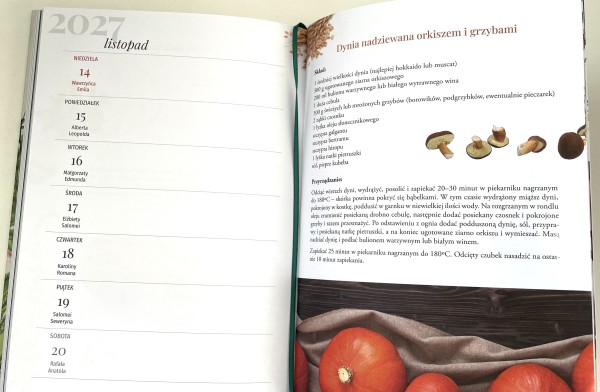 2027
listopad
NIEDZIELA
14
Wawrzyńca
Emila
PONIEDZIAŁEK
15
Alberta
Leopolda
WTOREK
16
Małgorzaty
Edmunda
ŚRODA
17
Elżbiety
Salomei
CZWARTEK
18
Karoliny
Romana
PIĄTEK
19
Salomei
Seweryna
SOBOTA
20
Rafała
Anatola
Dynia nadziewana orkiszem i grzybami
Skład:
1 średniej wielkości dynia (najlepiej hokkaido lub muscat)
300 g ugotowanego ziarna orkiszowego
200 ml bulionu warzywnego lub białego wytrawnego wina
1 duża cebula
300 g świeżych lub mrożonych grzybów (borowików, podgrzybków, ewentualnie pieczarek)
2 ząbki czosnku
1 łyżka oleju słonecznikowego
szczypta galgantu
szczypta bertramu
szczypta hizopu
1 łyżka natki pietruszki
sól, pieprz kubeba
Przyrządzanie:
Odciąć wierzch dyni, wydrążyć, posolić i zapiekać 20–30 minut w piekarniku nagrzanym
do 180ºC – skórka powinna pokryć się bąbelkami. W tym czasie wydrążony miąższ dyni,
pokrojony w kostkę, poddusić w garnku w niewielkiej ilości wody. Na rozgrzanym w rondlu
oleju zrumienić posiekaną drobno cebulę, następnie dodać posiekany czosnek i pokrojone
grzyby i razem przesmażyć. Po odstawieniu z ognia dodać podduszoną dynię, sól, przypra-
wy i posiekaną natkę pietruszki, a na koniec ugotowane ziarno orkiszu i wymieszać. Masą
nadziać dynię i podlać bulionem warzywnym lub białym winem.
Zapiekać 25 minut w piekarniku nagrzanym do 180ºC. Odcięty czubek nasadzić na ostat-
nie 10 minut zapiekania.